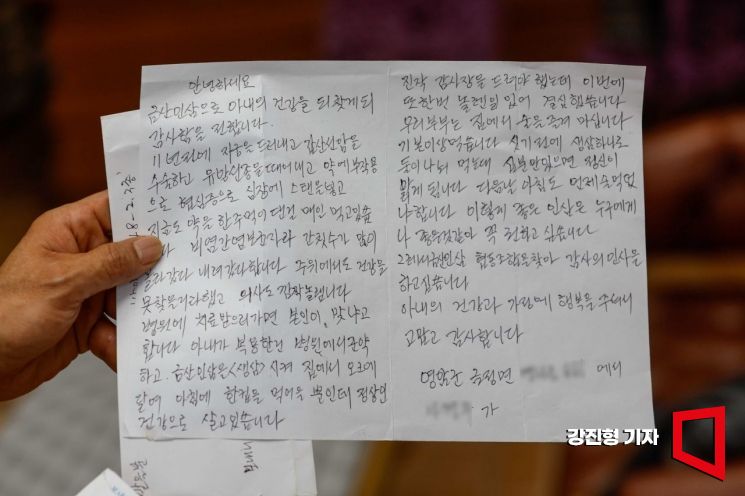 안녕하세요
금산인삼으로 아내의 건강을 되찾게되
감사함을 전합니다.
11년전에 자궁을 드러내고 갑산선암을
수술하고 유방신종을 떼어내고 약에 부작용
으로 협심증으로 심장에 스텐을넣고
지금도 약을 한주먹이 댄건 매인 먹고있습
비염간염보균자라 간칫수가 많이
올라갔다 내려갔다합니다 주위에서도 건강을
못찾을거라했고 의사도 깜짝놀랩니다
병원에 치료받으러가면 본인이 맞냐고
합니다 아내가 복용한건 병원에서준약
하고 금산인삼은<생삼>시켜 집에서 오크에
달여 아침에 한컵을 먹어욱 뿐인데 정상인
건강으로 살고있습니다
진작 감사장을 드려야 했는데 이번에
또한번 놀랜일 있어 결심했습니다
우리부부는 집에서 술을 즐겨 마십니다
기본이상먹습니다 생삼하나로
둘이나눠 먹는데 십분만있으면 정신이
맑게 됩니다 다음날 아침도 언제술먹었
나합니다 이렇게 좋은 인삼은 누구에게
나 좋을것같아 꼭 전하고 싶습니다
협동조합을찾아 감사의인사를
하고싶습니다
아내의 건강과 가정에 행복을 주셔서
고맙고 감사합니다
영암군 금정면 에서
가
강진형 기자